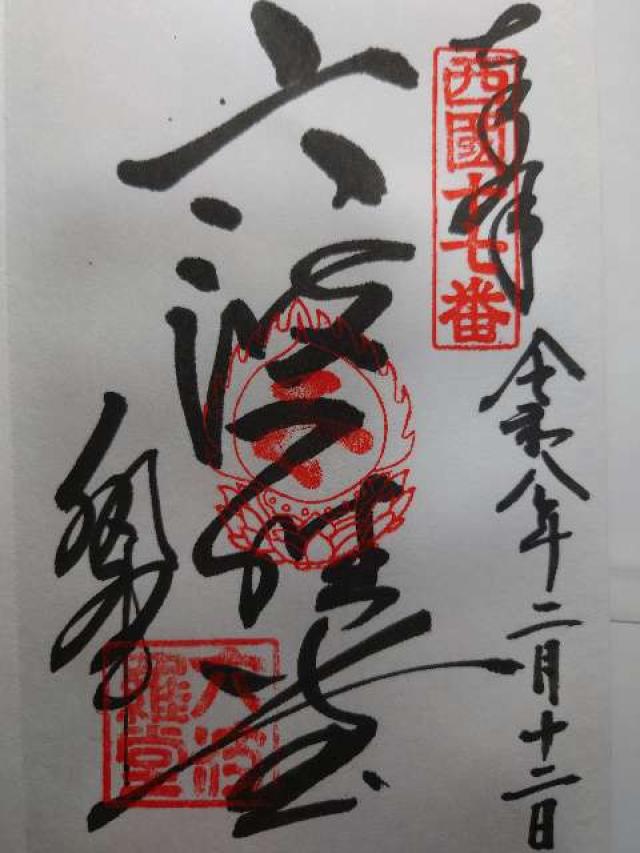 奉拝
西國十七番
令和八年二月十二日
六波羅堂
六波
羅堂